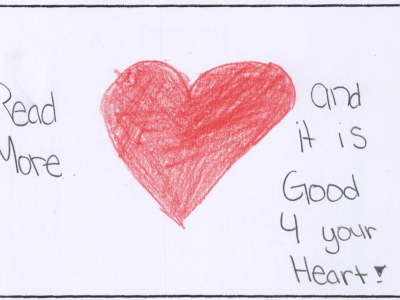 Read
More
and
it is
Good
4 your
Heart!